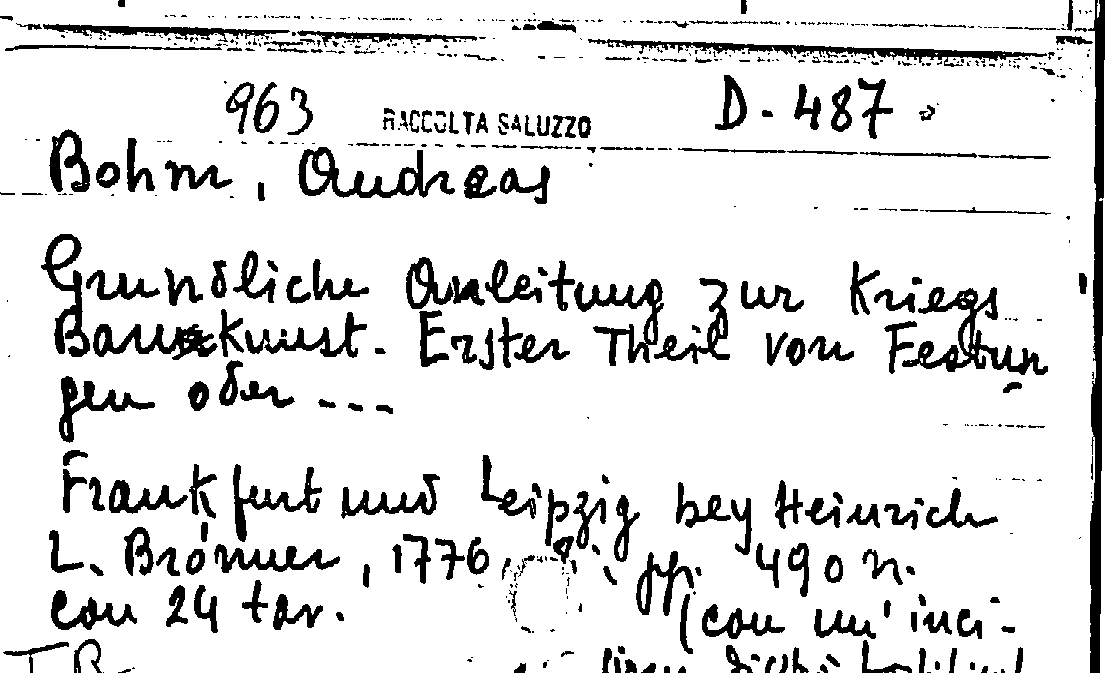 963 RACCOLTA SALUZZO D-487
Bohm, Andreas
Grundliche Anleitung zur Kriegs
Bau Kunst. Erster Theil von Festun
gen oder ---
Frankfurt und Leipzig bey Heinrich
L. Brönner, 1776, pp. 490 n.
con 24 tav. (con un' inci-